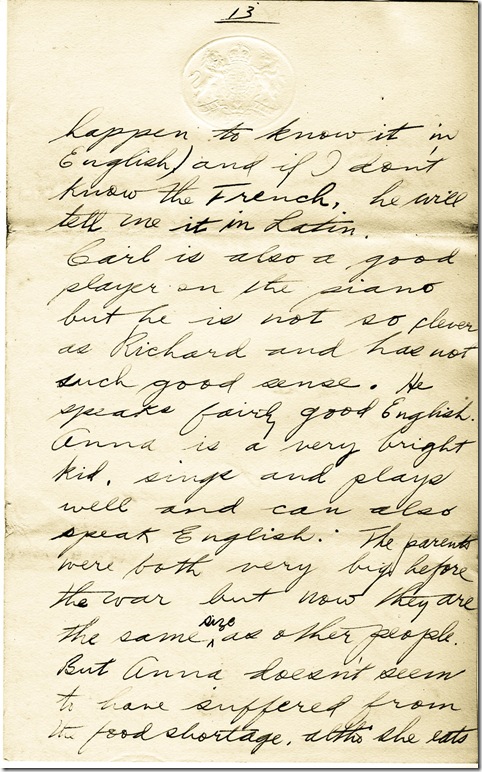 13
happen to know it in
English) and if I don't
know the French, he will
tell me it in Latin.
Carl is also a good
player on the piano
but he is not so clever
as Richard and has not
such good sense. He
speaks fairly good English.
Anna is a very bright
kid, sings and plays
well and can also
speak English. The parents
were both very big before
the war but now they are
the same size as other people.
But Anna doesn't seem
to have suffered from
the food shortage, altho' she eats